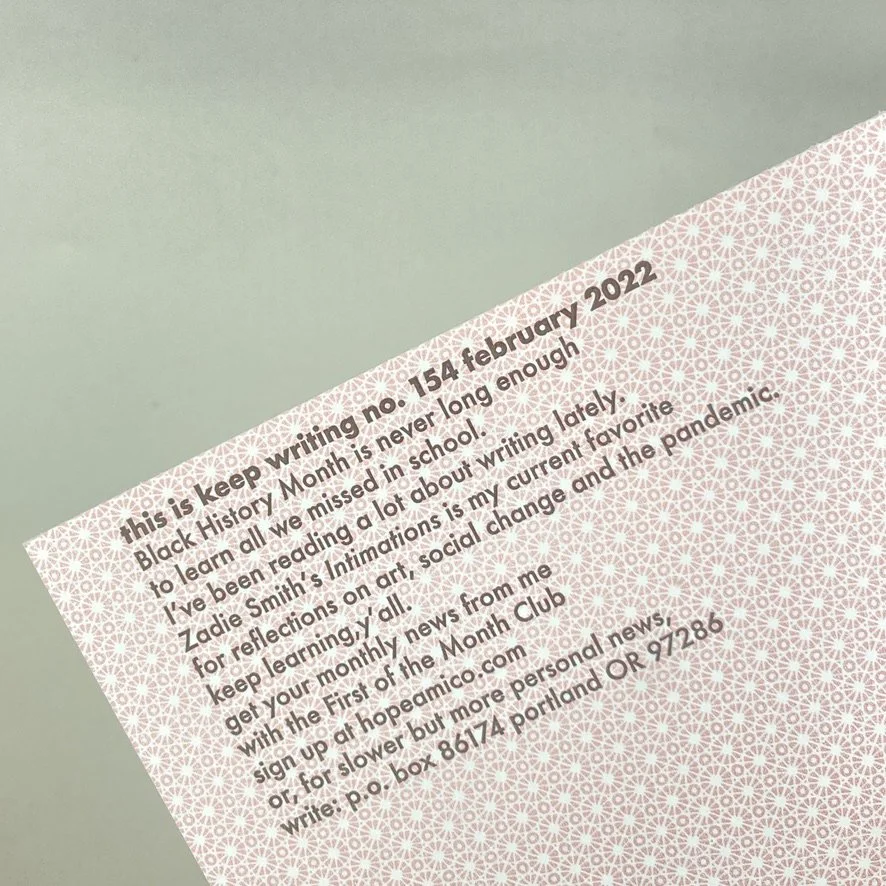 this is keep writing no. 154 february 2022
Black History Month is never long enough
to learn all we missed in school.
I've been reading a lot about writing lately.
Zadie Smith's Intimations is my current favorite
for reflections on art, social change and the pandemic.
keep learning,y'all.
get your monthly news from me
with the First of the Month Club
sign up at hopeamico.com
or, for slower but more personal news,
write: p.o. box 86174 portland OR 97286